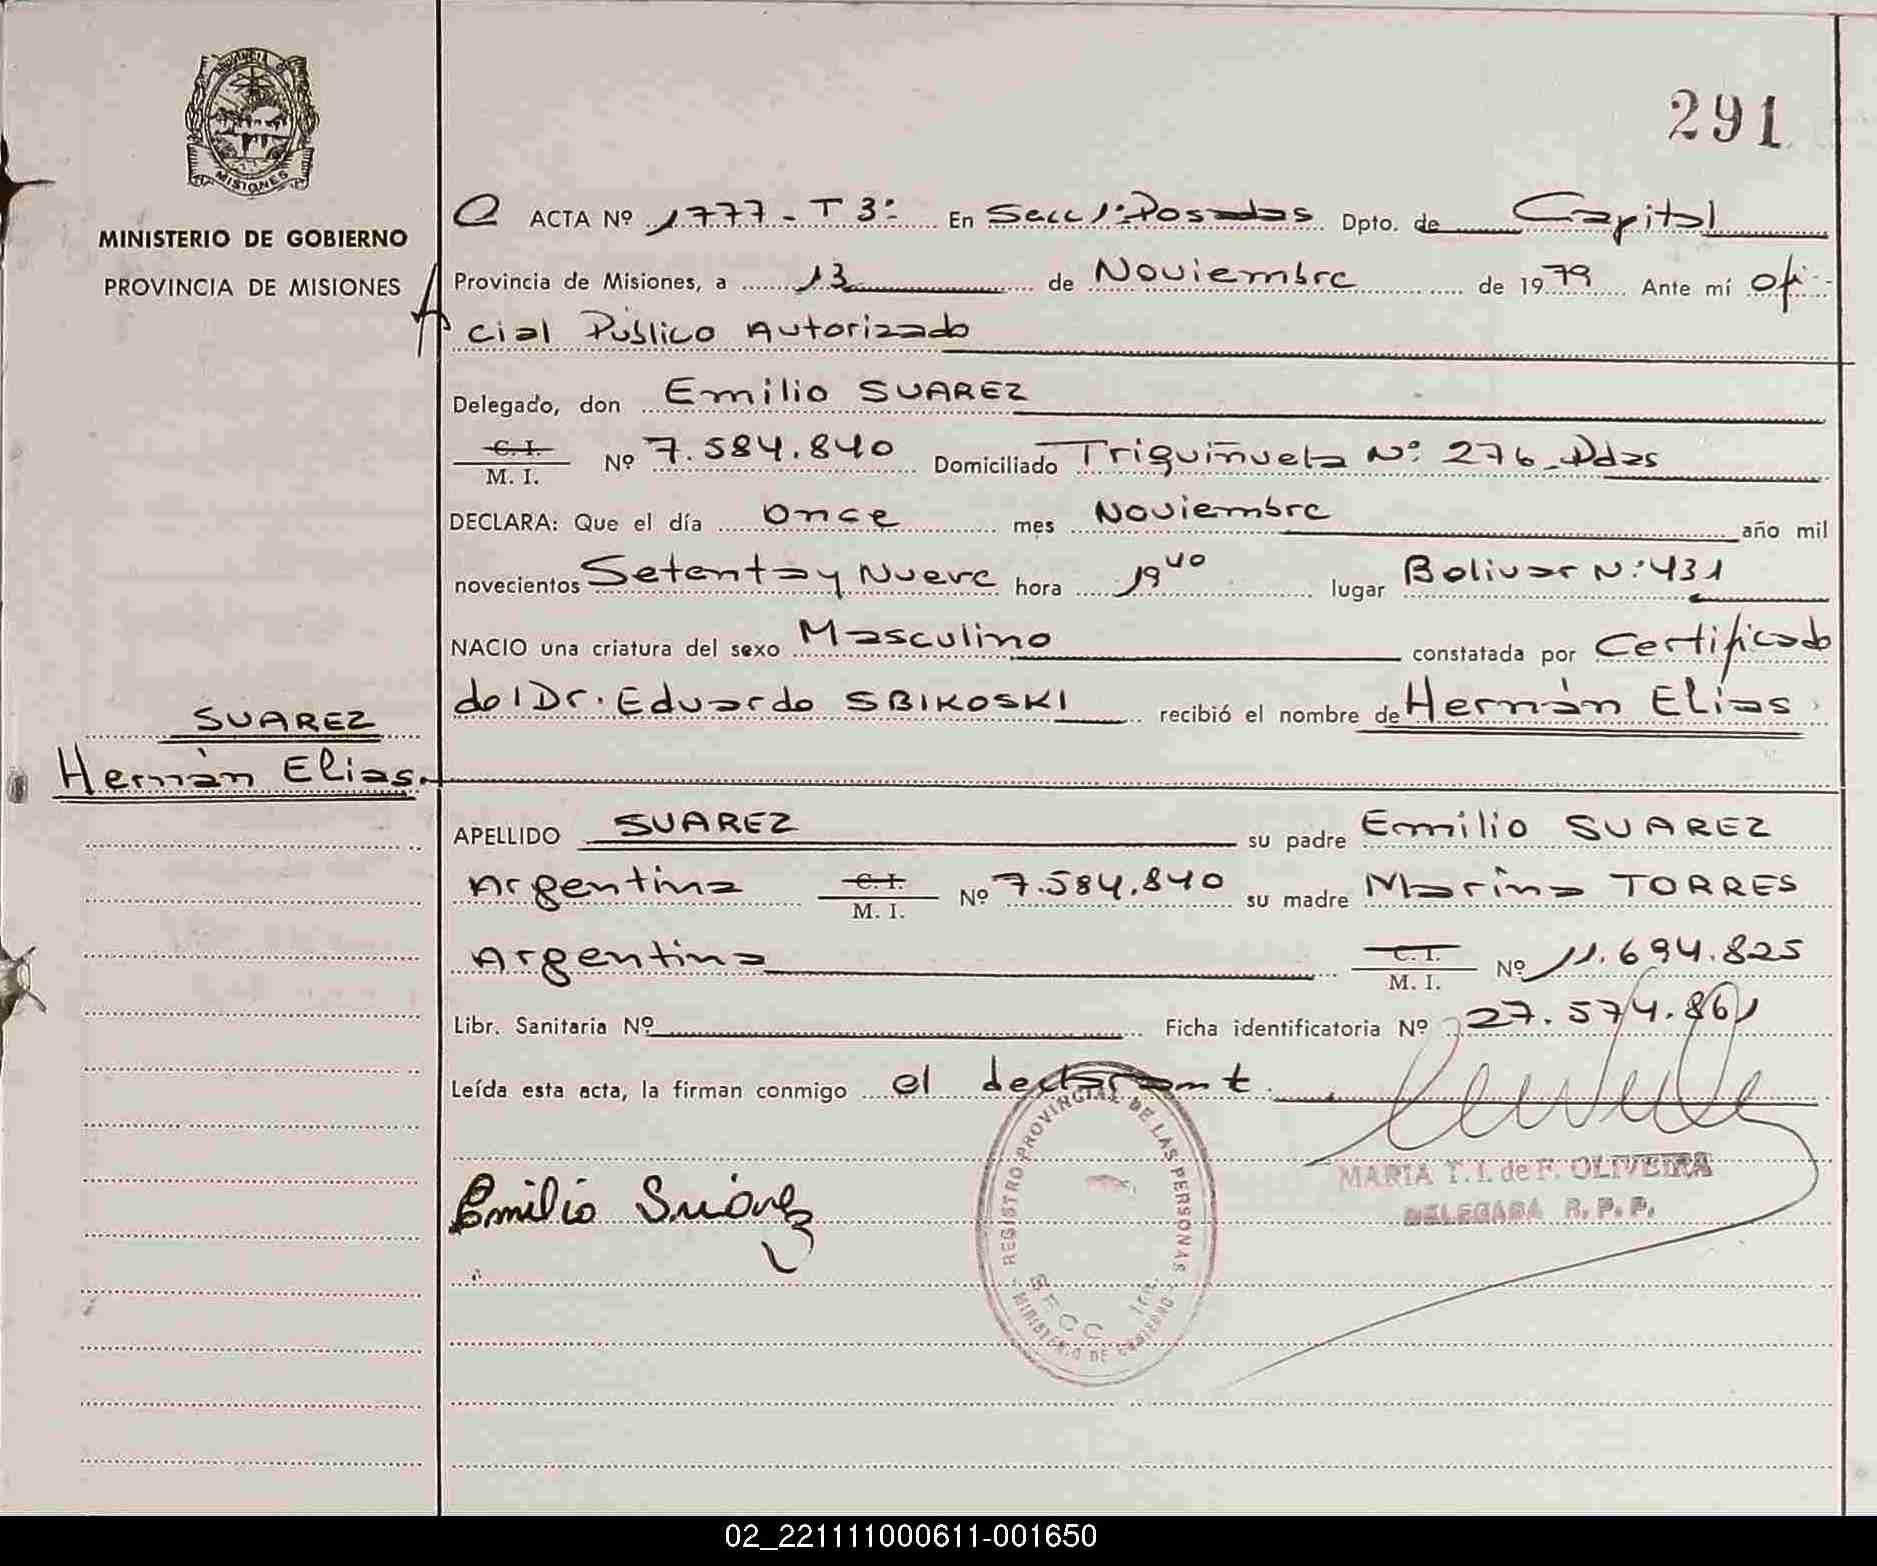 PROVINCIA DE
MISIONES
MINISTERIO DE GOBIERNO
PROVINCIA DE MISIONES
SUAREZ
Hernán Elias.
291
ACTA Nº 1777 - T 3º En Secc 1º Posadas Dpto. de Capital
Provincia de Misiones, a 13 de Noviembre de 1979 Ante mí ofi-
cial Público Autorizado
Delegado, don Emilio SUAREZ
C. I.
M. I. Nº 7.584.840 Domiciliado Triguiñuela Nº 276 - Pdas
DECLARA: Que el día once mes Noviembre año mil
novecientos Setenta y Nueve hora 19 40 lugar Bolivar Nº 431
NACIO una criatura del sexo Masculino constatada por Certificado
del Dr. Eduardo SBIKOSKI recibió el nombre de Hernán Elias.
APELLIDO SUAREZ su padre Emilio SUAREZ
Argentina C. I. M. I. Nº 7.584.840 su madre Marina TORRES
Argentina C. I. M. I. Nº 11.694.825
Libr. Sanitaria Nº Ficha identificatoria Nº 27.574.861
Leída esta acta, la firman conmigo el declarant.
REGISTRO PROVINCIAL DE LAS PERSONAS
SECC 1ra.
MINISTERIO DE GOBIERNO
Emilio Suárez
MARIA T. I. de F. OLIVEIRA
DELEGADA R. P. P.
02_221111000611-001650